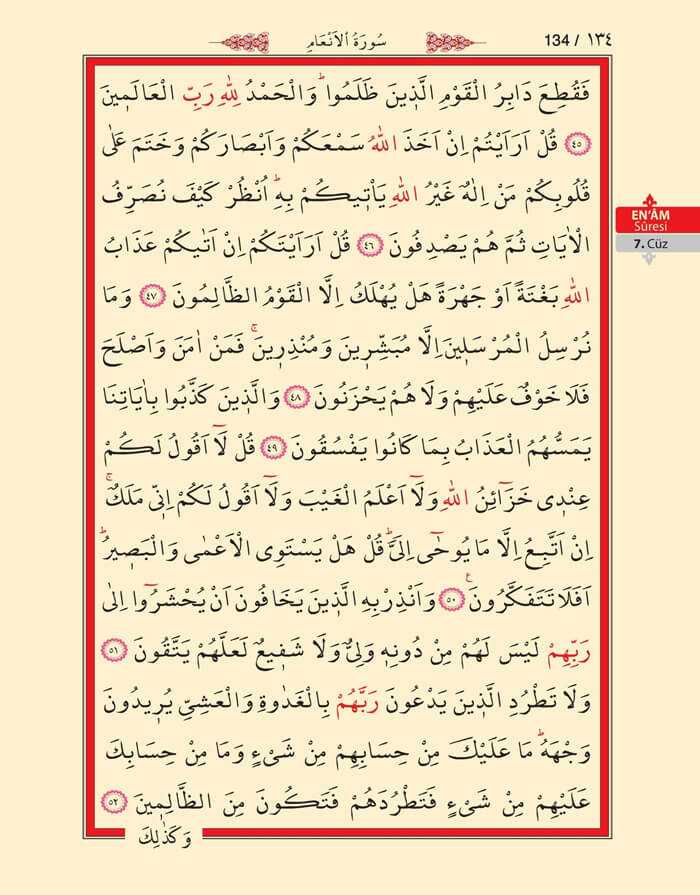 سُورَةُ الْاَنْعَامِ
134 / ١٣٤
فَقُطِعَ دَابِرُ الْقَوْمِ الَّذ۪ينَ ظَلَمُواۜ وَالْحَمْدُ لِلّٰهِ رَبِّ الْعَالَم۪ينَ
﴿٤٥﴾ قُلْ اَرَاَيْتُمْ اِنْ اَخَذَ اللّٰهُ سَمْعَكُمْ وَاَبْصَارَكُمْ وَخَتَمَ عَلٰى
قُلُوبِكُمْ مَنْ اِلٰهٌ غَيْرُ اللّٰهِ يَأْت۪يكُمْ بِه۪ۜ اُنْظُرْ كَيْفَ نُصَرِّفُ
الْاٰيَاتِ ثُمَّ هُمْ يَصْدِفُونَ ﴿٤٦﴾ قُلْ اَرَاَيْتَكُمْ اِنْ اَتٰيكُمْ عَذَابُ
اللّٰهِ بَغْتَةً اَوْ جَهْرَةً هَلْ يُهْلَكُ اِلَّا الْقَوْمُ الظَّالِمُونَ ﴿٤٧﴾ وَمَا
نُرْسِلُ الْمُرْسَل۪ينَ اِلَّا مُبَشِّر۪ينَ وَمُنْذِر۪ينَۚ فَمَنْ اٰمَنَ وَاَصْلَحَ
فَلَا خَوْفٌ عَلَيْهِمْ وَلَا هُمْ يَحْزَنُونَ ﴿٤٨﴾ وَالَّذ۪ينَ كَذَّبُوا بِاٰيَاتِنَا
يَمَسُّهُمُ الْعَذَابُ بِمَا كَانُوا يَفْسُقُونَ ﴿٤٩﴾ قُلْ لَٓا اَقُولُ لَكُمْ
عِنْد۪ي خَزَٓائِنُ اللّٰهِ وَلَٓا اَعْلَمُ الْغَيْبَ وَلَٓا اَقُولُ لَكُمْ اِنّ۪ي مَلَكٌۚ
اِنْ اَتَّبِعُ اِلَّا مَا يُوحٰٓى اِلَيَّۜ قُلْ هَلْ يَسْتَوِي الْاَعْمٰى وَالْبَص۪يرُۜ
اَفَلَا تَتَفَكَّرُونَ۟ ﴿٥٠﴾ وَاَنْذِرْ بِهِ الَّذ۪ينَ يَخَافُونَ اَنْ يُحْشَرُٓوا اِلٰى
رَبِّهِمْ لَيْسَ لَهُمْ مِنْ دُونِه۪ وَلِيٌّ وَلَا شَف۪يعٌ لَعَلَّهُمْ يَتَّقُونَ ﴿٥١﴾
وَلَا تَطْرُدِ الَّذ۪ينَ يَدْعُونَ رَبَّهُمْ بِالْغَدٰوةِ وَالْعَشِيِّ يُر۪يدُونَ
وَجْهَهُۜ مَا عَلَيْكَ مِنْ حِسَابِهِمْ مِنْ شَيْءٍ وَمَا مِنْ حِسَابِكَ
عَلَيْهِمْ مِنْ شَيْءٍ فَتَطْرُدَهُمْ فَتَكُونَ مِنَ الظَّالِم۪ينَ ﴿٥٢﴾
وَكَذٰلِكَ
EN'ÂM
Sûresi
7. Cüz